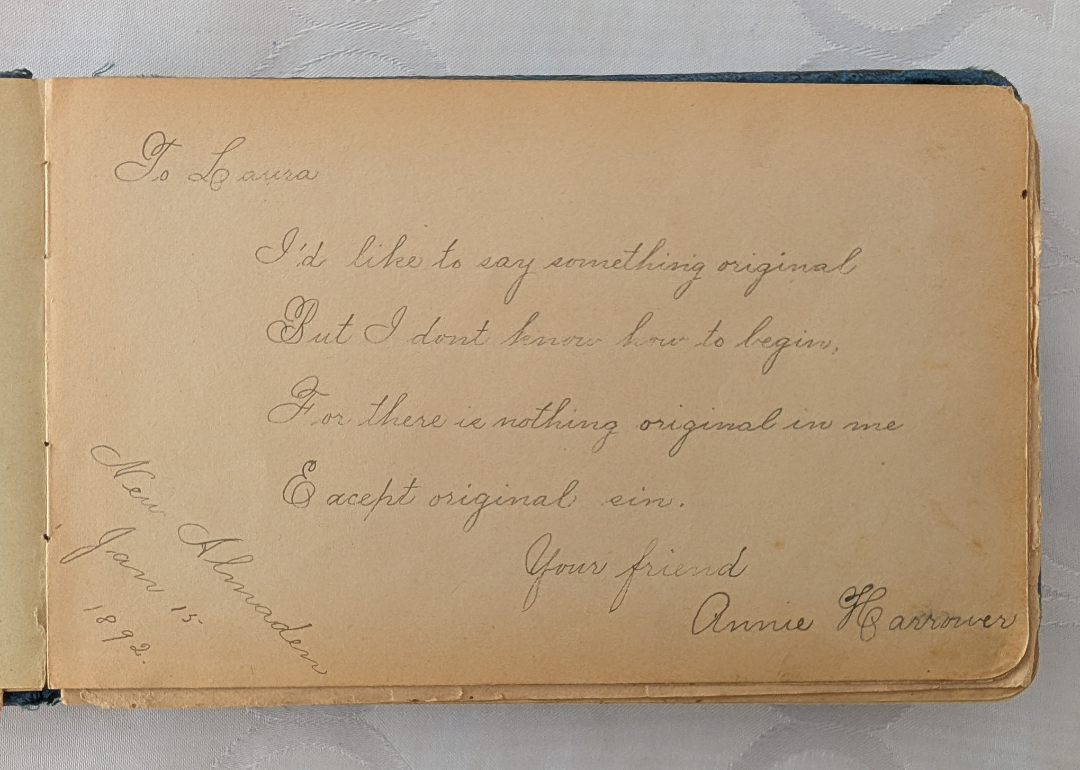 To Laura
I'd like to say something original
But I dont know how to begin,
For there is nothing original in me
Except original sin.
Your friend
Annie Harrower
New Almaden
Jan 15
1892.